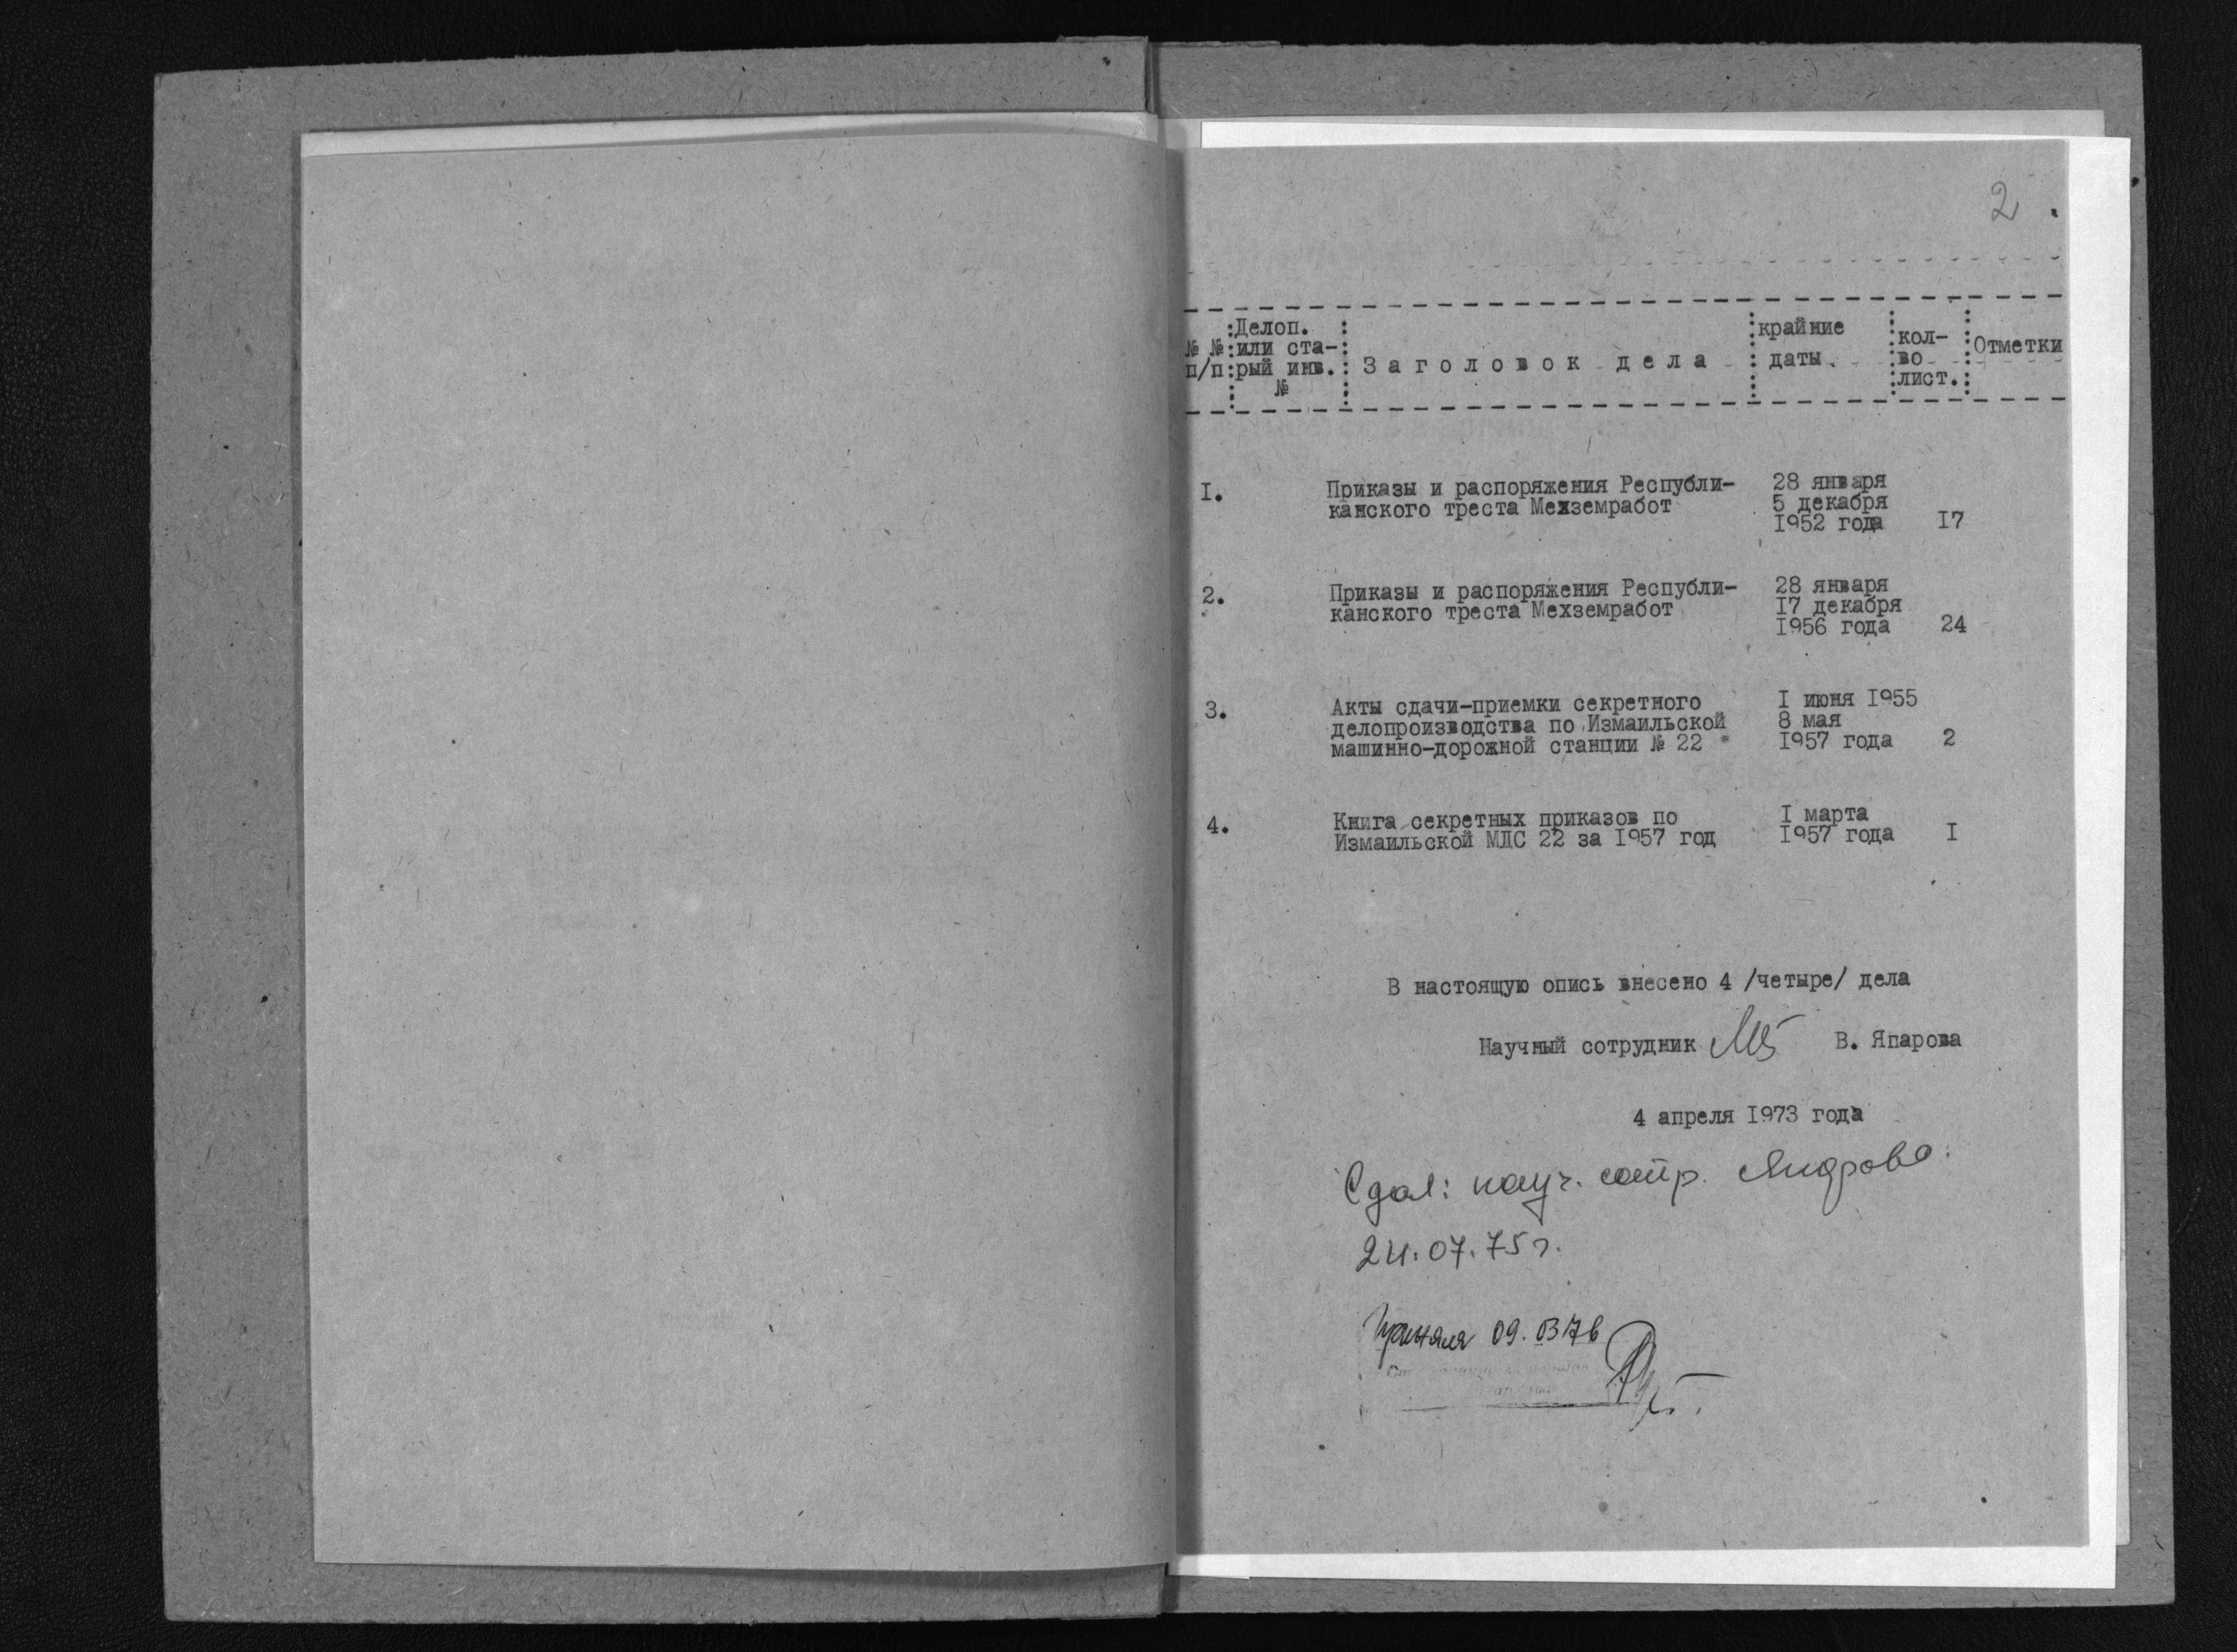 2
№ № п/п : Делоп. или ста- рый инв. № : Заголовок дела : крайние даты : кол- во лист. : Отметки
1. Приказы и распоряжения Республи- 28 января
канского треста Мехземработ 5 декабря
1952 года 17
2. Приказы и распоряжения Республи- 28 января
канского треста Мехземработ 17 декабря
1956 года 24
3. Акты сдачи-приемки секретного 1 июня 1955
делопроизводства по Измаильской 8 мая
машинно-дорожной станции № 22 1957 года 2
4. Книга секретных приказов по 1 марта
Измаильской МДС 22 за 1957 год 1957 года 1
В настоящую опись внесено 4 /четыре/ дела
Научный сотрудник В. Япарова
4 апреля 1973 года
Сдал: науч. сотр.
24.07.75 г.
Приняла 09.03.76